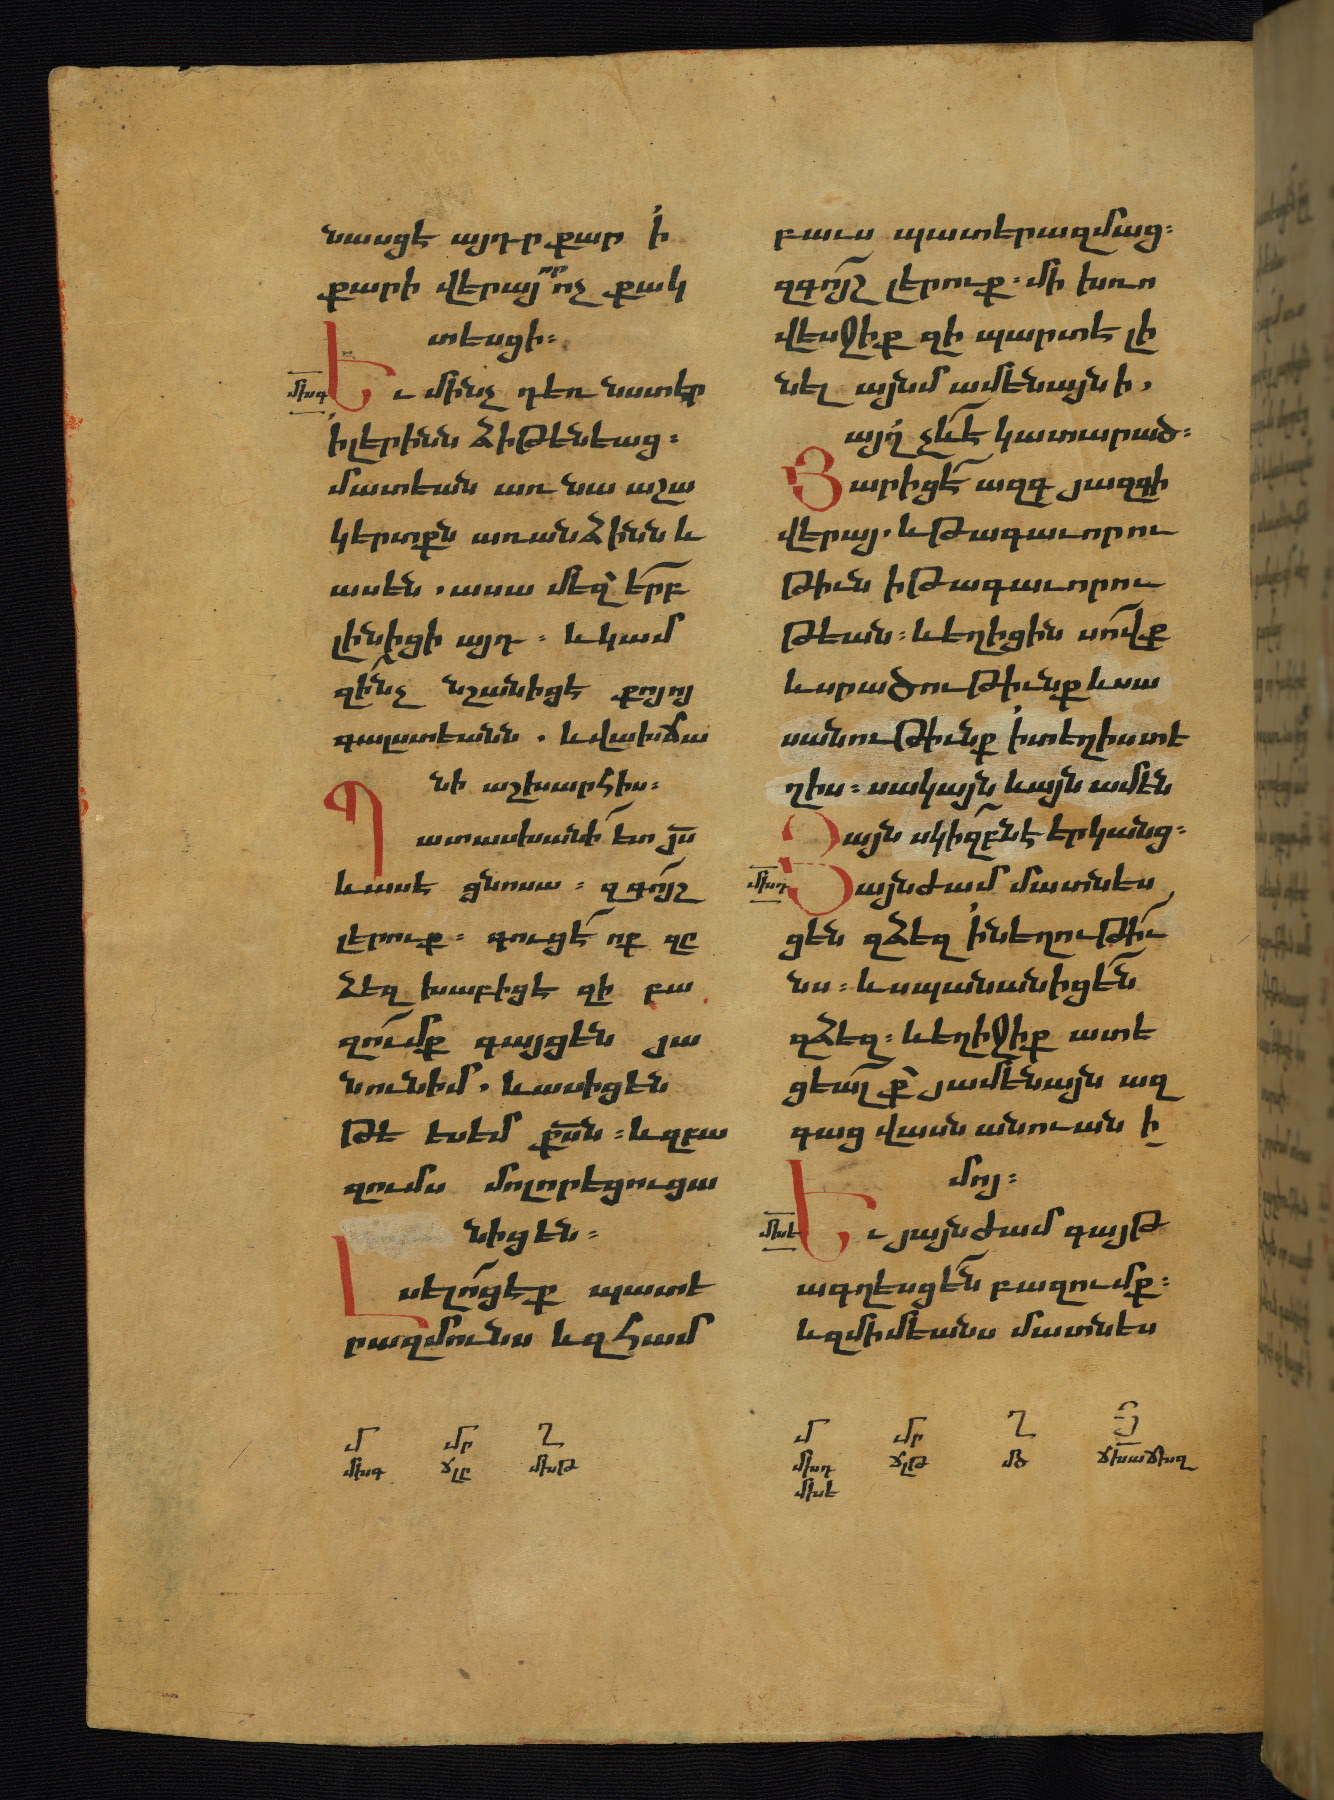 նասցէ այդր քար ՚ի
քարի վերայ՝ որ ոչ քակ
տեսցի։
մխգ
Եւ մինչ դեռ նստէր
՚ի լերինն ձիթենեաց։
մատեան առ նա աշա
կերտքն առանձինն և
ասեն․ ասա մեզ երբ
լինիցի այդ։ և կամ
զինչ նշանիցէ քոյոյ
գալստեանն․ և վախճա
նի աշխարհիս։
Պատասխանի ետ յս
և ասէ ցնոսա։ զգոյշ
լերուք։ գուցէ ոք զը
ձեզ խաբիցէ զի բա
զումք գայցեն յա
նուն իմ․ և ասիցեն
թե ես եմ քսն։ և զբա
զումս մոլորեցուցա
նիցեն։
Լսելոցէք պատե
րազմունս և զհամ
բաւս պատերազմաց։
զգոյշ լերուք։ մի խռո
վեսջիք զի պարտէ լի
նել այնմ ամենայնի․
այղ չև է կատարած։
Յարիցէ ազգ յազգի
վերայ․ և թագաւորու
թիւն ի թագաւորու
թեան։ և եղիցին սովք
և սրածութիւնք և սա
սանութիւնք ՚ի տեղիս տե
ղիս։ սակայն և այն ամէն
այն սկիզբն է երկանց։
մխդ
Յայնժամ մատնես
ցեն զձեզ ՚ի նեղութիւ
նս։ և սպանանիցեն
զձեզ։ և եղիջիք ատե
ցեալ ք յամենայն ազ
գաց վասն անուան ի
մոյ։
մխե
Եւ յայնժամ գայթ
ագղեսցեն բազումք։
և զմիմեանս մատնես
մ մր ղ
մխգ ճլը մխթ
մ մր ղ յ
մխդ ճլթ մծ ճխա ճխզ
մխե